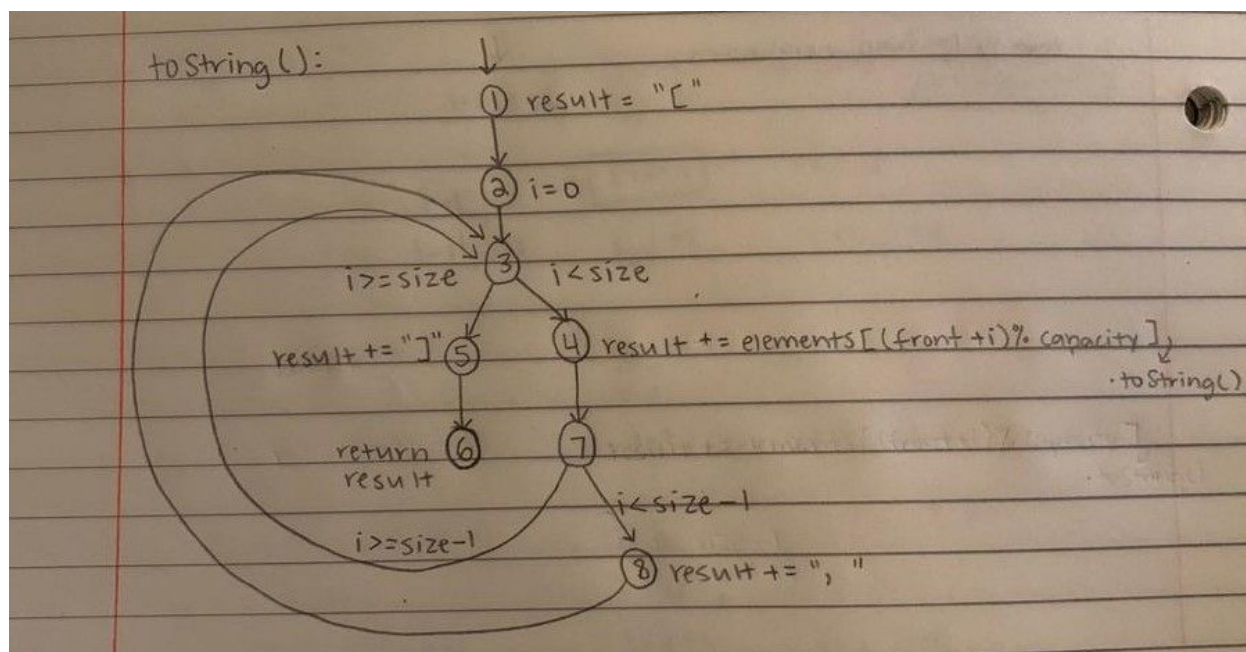 toString():
① result = "["
② i=0
③
i>=size
i<size
result += "]" ⑤
④ result += elements[(front+i)% capacity]
.toString()
return ⑥
result
⑦
i<size-1
i>=size-1
⑧ result += ", "